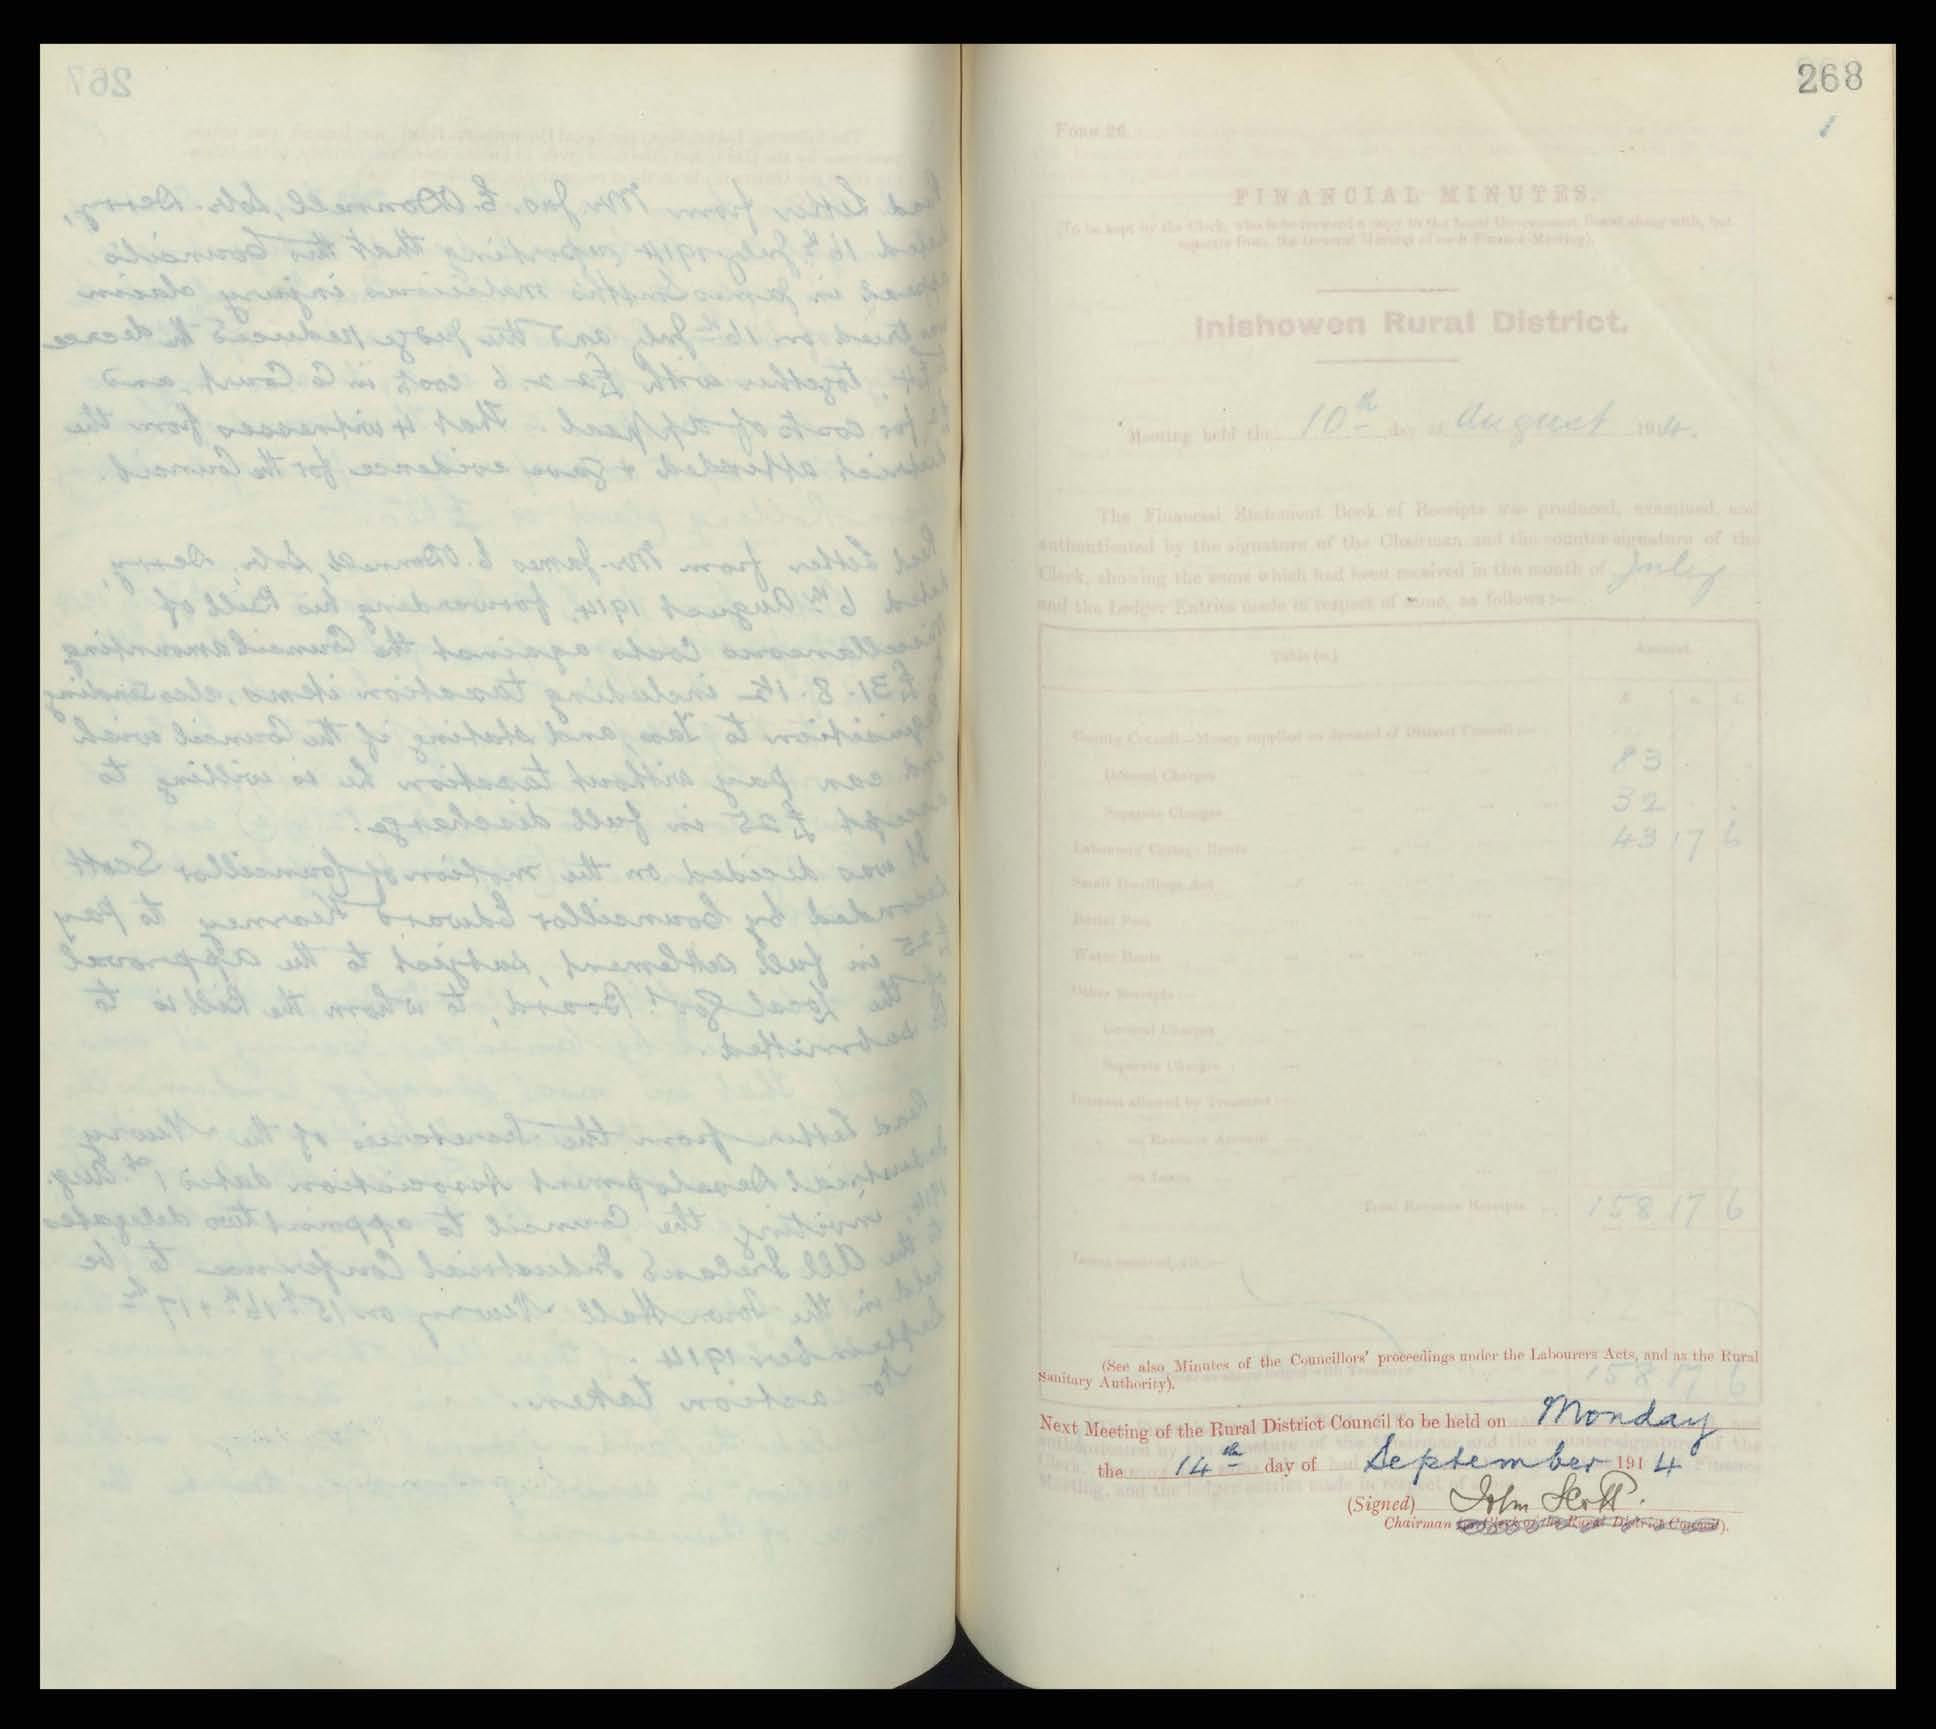 268
FORM 26.
FINANCIAL MINUTES.
(To be kept by the Clerk, who is to forward a copy to the Local Government Board along with, but
separate from, the General Minutes of each Finance Meeting).
Inishowen Rural District.
Meeting held the 10th day of August 1914.
The Financial Statement Book of Receipts was produced, examined, and
authenticated by the signature of the Chairman and the counter-signature of the
Clerk, showing the sums which had been received in the month of July
and the Ledger Entries made in respect of same, as follows:—
Table (a.) Amount.
£ s. d.
County Council—Money supplied on demand of District Council:—
General Charges 83
Separate Charges 32
Labourers' Cottage Rents 43 17 6
Small Dwellings Act
Burial Fees
Water Rents
Other Receipts:—
General Charges
Separate Charges
Interest allowed by Treasurer:—
on Revenue Account
on Loans
Total Revenue Receipts 158 17 6
Loans received, viz.:—
158 17 6
(See also Minutes of the Councillors' proceedings under the Labourers Acts, and as the Rural
Sanitary Authority).
Next Meeting of the Rural District Council to be held on Monday
the 14th day of September 1914
(Signed) John Scott.
Chairman (or Clerk of the Rural District Council).
267
Read letter from Mr Jas. E. O'Donnell, Solr. Derry,
dated 16th July 1914 reporting that the Council's
appeal in James Smith's malicious injury claim
was tried on 16th July and the judge reduced the decree
together with £2.2.6 costs in Co Court, and
for costs of appeal. That 4 witnesses from the
district attended & gave evidence for the Council.
Read letter from Mr James E. O'Donnell, Solr, Derry,
dated 6th August 1914, forwarding his Bill of
miscellaneous costs against the Council amounting
£31.8.1½ including taxation items, also sending
requisition to tax, and stating if the Council wish
and can pay without taxation he is willing to
accept £25 in full discharge.
It was decided on the motion of Councillor Scott
seconded by Councillor Edward Kearney to pay
£25 in full settlement, subject to the approval
of the Local Govt. Board, to whom the Bill is to
be submitted.
Read letter from the Secretaries of the Newry
Industrial Development Association dated 1st Aug.
1914, inviting the Council to appoint two delegates
to the All Ireland Industrial Conference to be
held in the Town Hall Newry on 15th, 16th & 17th
September 1914.
No action taken.